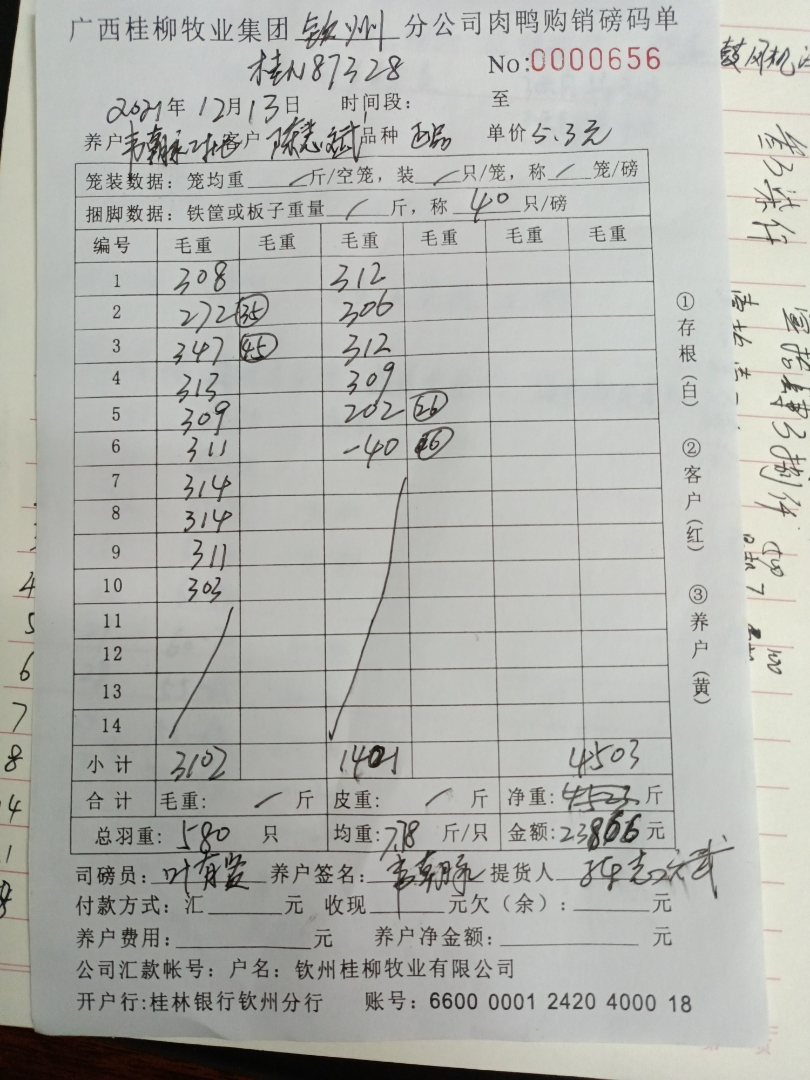 广西桂柳牧业集团 钦州 分公司肉鸭购销磅码单
桂N87328 No:0000656
2021年12月13日 时间段: 至
养户 韦朝永 客户 陈志斌 品种 单价5.3元
笼装数据:笼均重 / 斤/空笼,装 / 只/笼,称 / 笼/磅
捆脚数据:铁筐或板子重量 / 斤,称 40 只/磅
编号 毛重 毛重 毛重 毛重 毛重 毛重
1 308 312
2 272 35 306
3 347 45 312
4 313 309
5 309 202 26
6 311 -40
7 314
8 314
9 311
10 303
11
12
13
14
小计 3102 1401 4503
合计 毛重: / 斤 皮重: / 斤 净重: 斤
总羽重: 580 只 均重:7.78 斤/只 金额:23866元
司磅员: 叶有 养户签名: 韦朝永 提货人 陈志斌
付款方式:汇 元 收现 元欠(余): 元
养户费用: 元 养户净金额: 元
公司汇款帐号:户名:钦州桂柳牧业有限公司
开户行:桂林银行钦州分行 账号:6600 0001 2420 4000 18
①存根(白) ②客户(红) ③养户(黄)
鼓风机
4
5
6
7
8